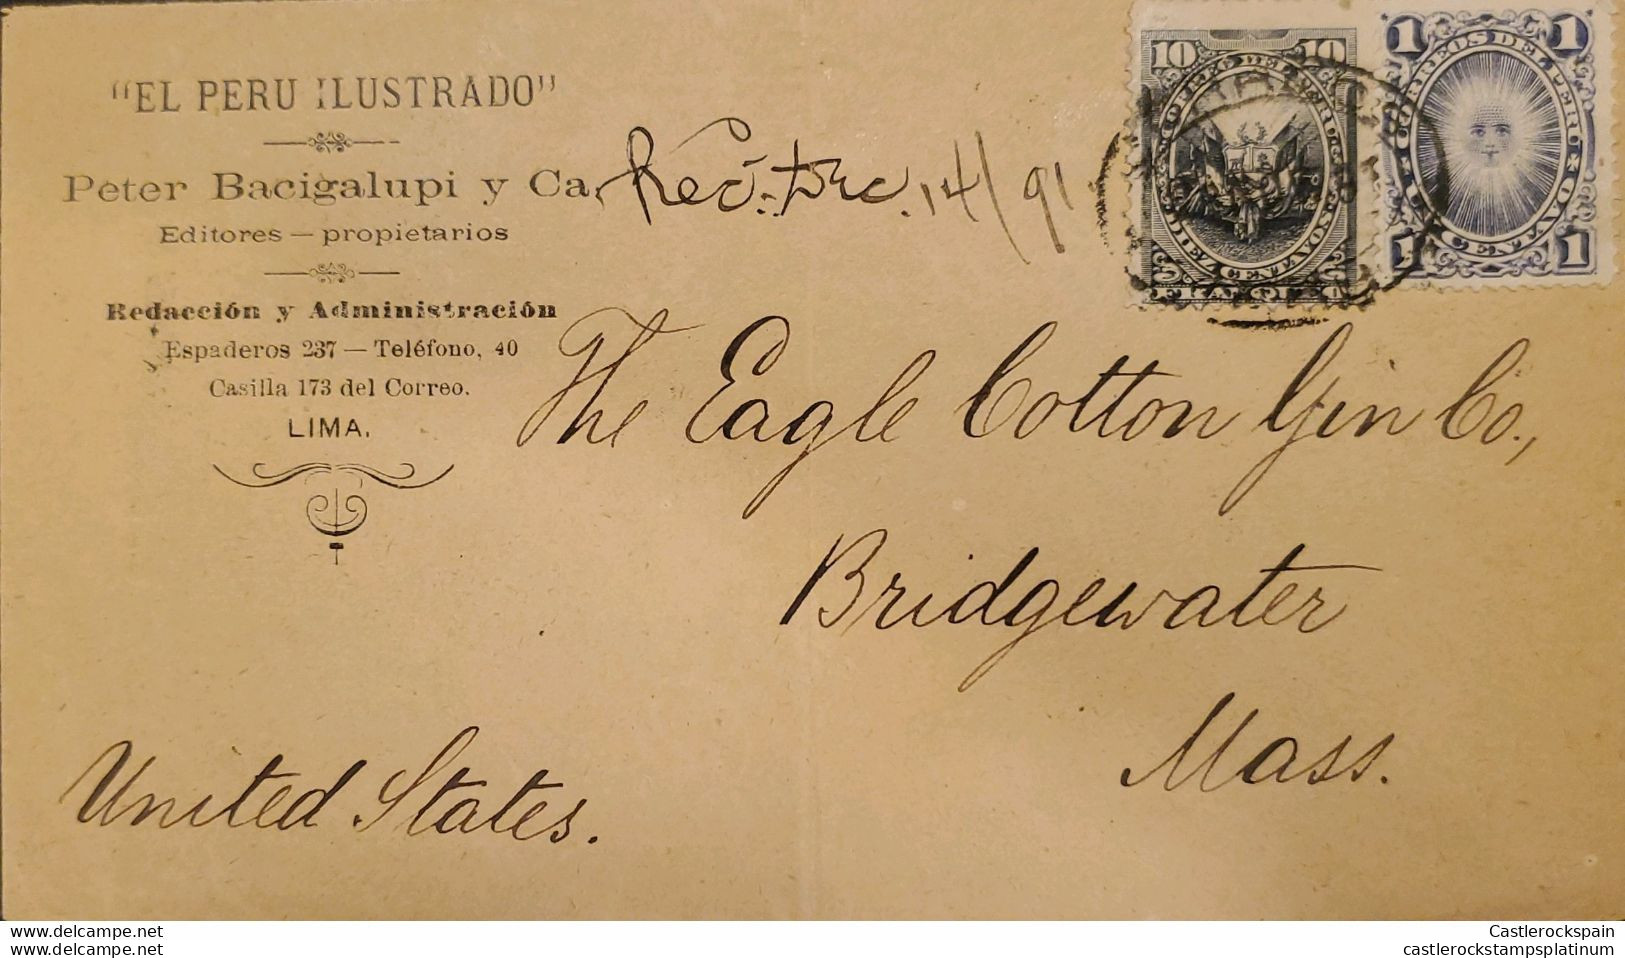 "EL PERU ILUSTRADO"
Peter Bacigalupi y Ca.
Editores — propietarios
Redacción y Administración
Espaderos 237 — Teléfono, 40
Casilla 173 del Correo.
LIMA.
Rec. Dec. 14/91
10 10
1 1
CORREOS DEL PERU
UN CENTAVO
1 1
The Eagle Cotton Gin Co.,
Bridgewater
Mass.
United States.
delcampe.net
delcampe.net
Castlerockspain
castlerockstampsplatinum